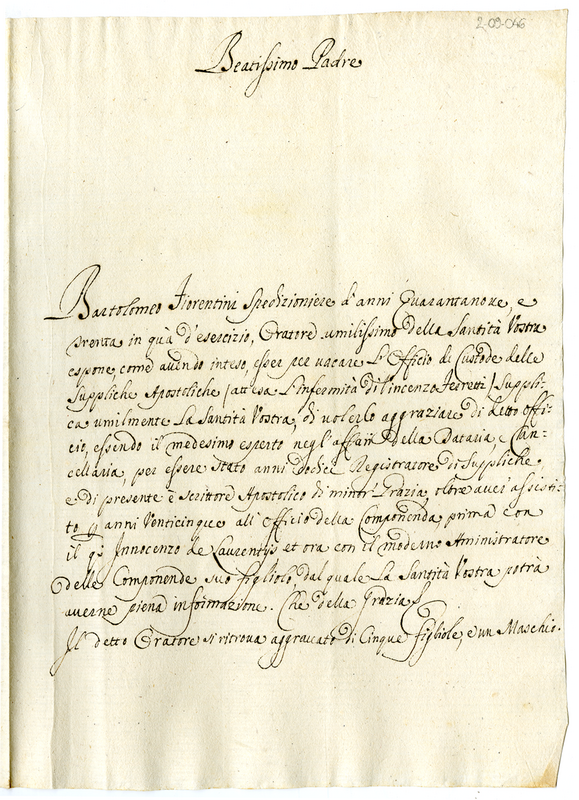 2-09-046
Beatissimo Padre
Bartolomeo Fiorentini Spedizioniere d'anni Quarantanoue, e
trenta in quà d'esercizio, Oratore umilissimo della Santità Vostra
espone, come auendo inteso, esser per uacare L'Officio di Custode delle
Suppliche Apostoliche /attesa L'infermità di Vincenzo Ferretti/ Suppli-
ca umilmente La Santità Vostra, di uolerlo aggraziare di detto Offi-
cio, essendo il medesimo esperto negl'affari della Dataria, e Can-
cellaria, per essere stato anni dodici Registratore di Suppliche
e di presente è Scrittore Apostolico di Grazia, oltre auer assisti-
to p anni Venticinque all'Officio della Componenda, prima con
il q. Innocenzo de Laurentijs et ora con il moderno Aministratore
delle Componende suo figliolo, dal quale La Santità Vostra potrà
auerne piena informazione. Che della Grazia
Il detto Oratore si ritroua aggrauato di Cinque figliole, e un Maschio.